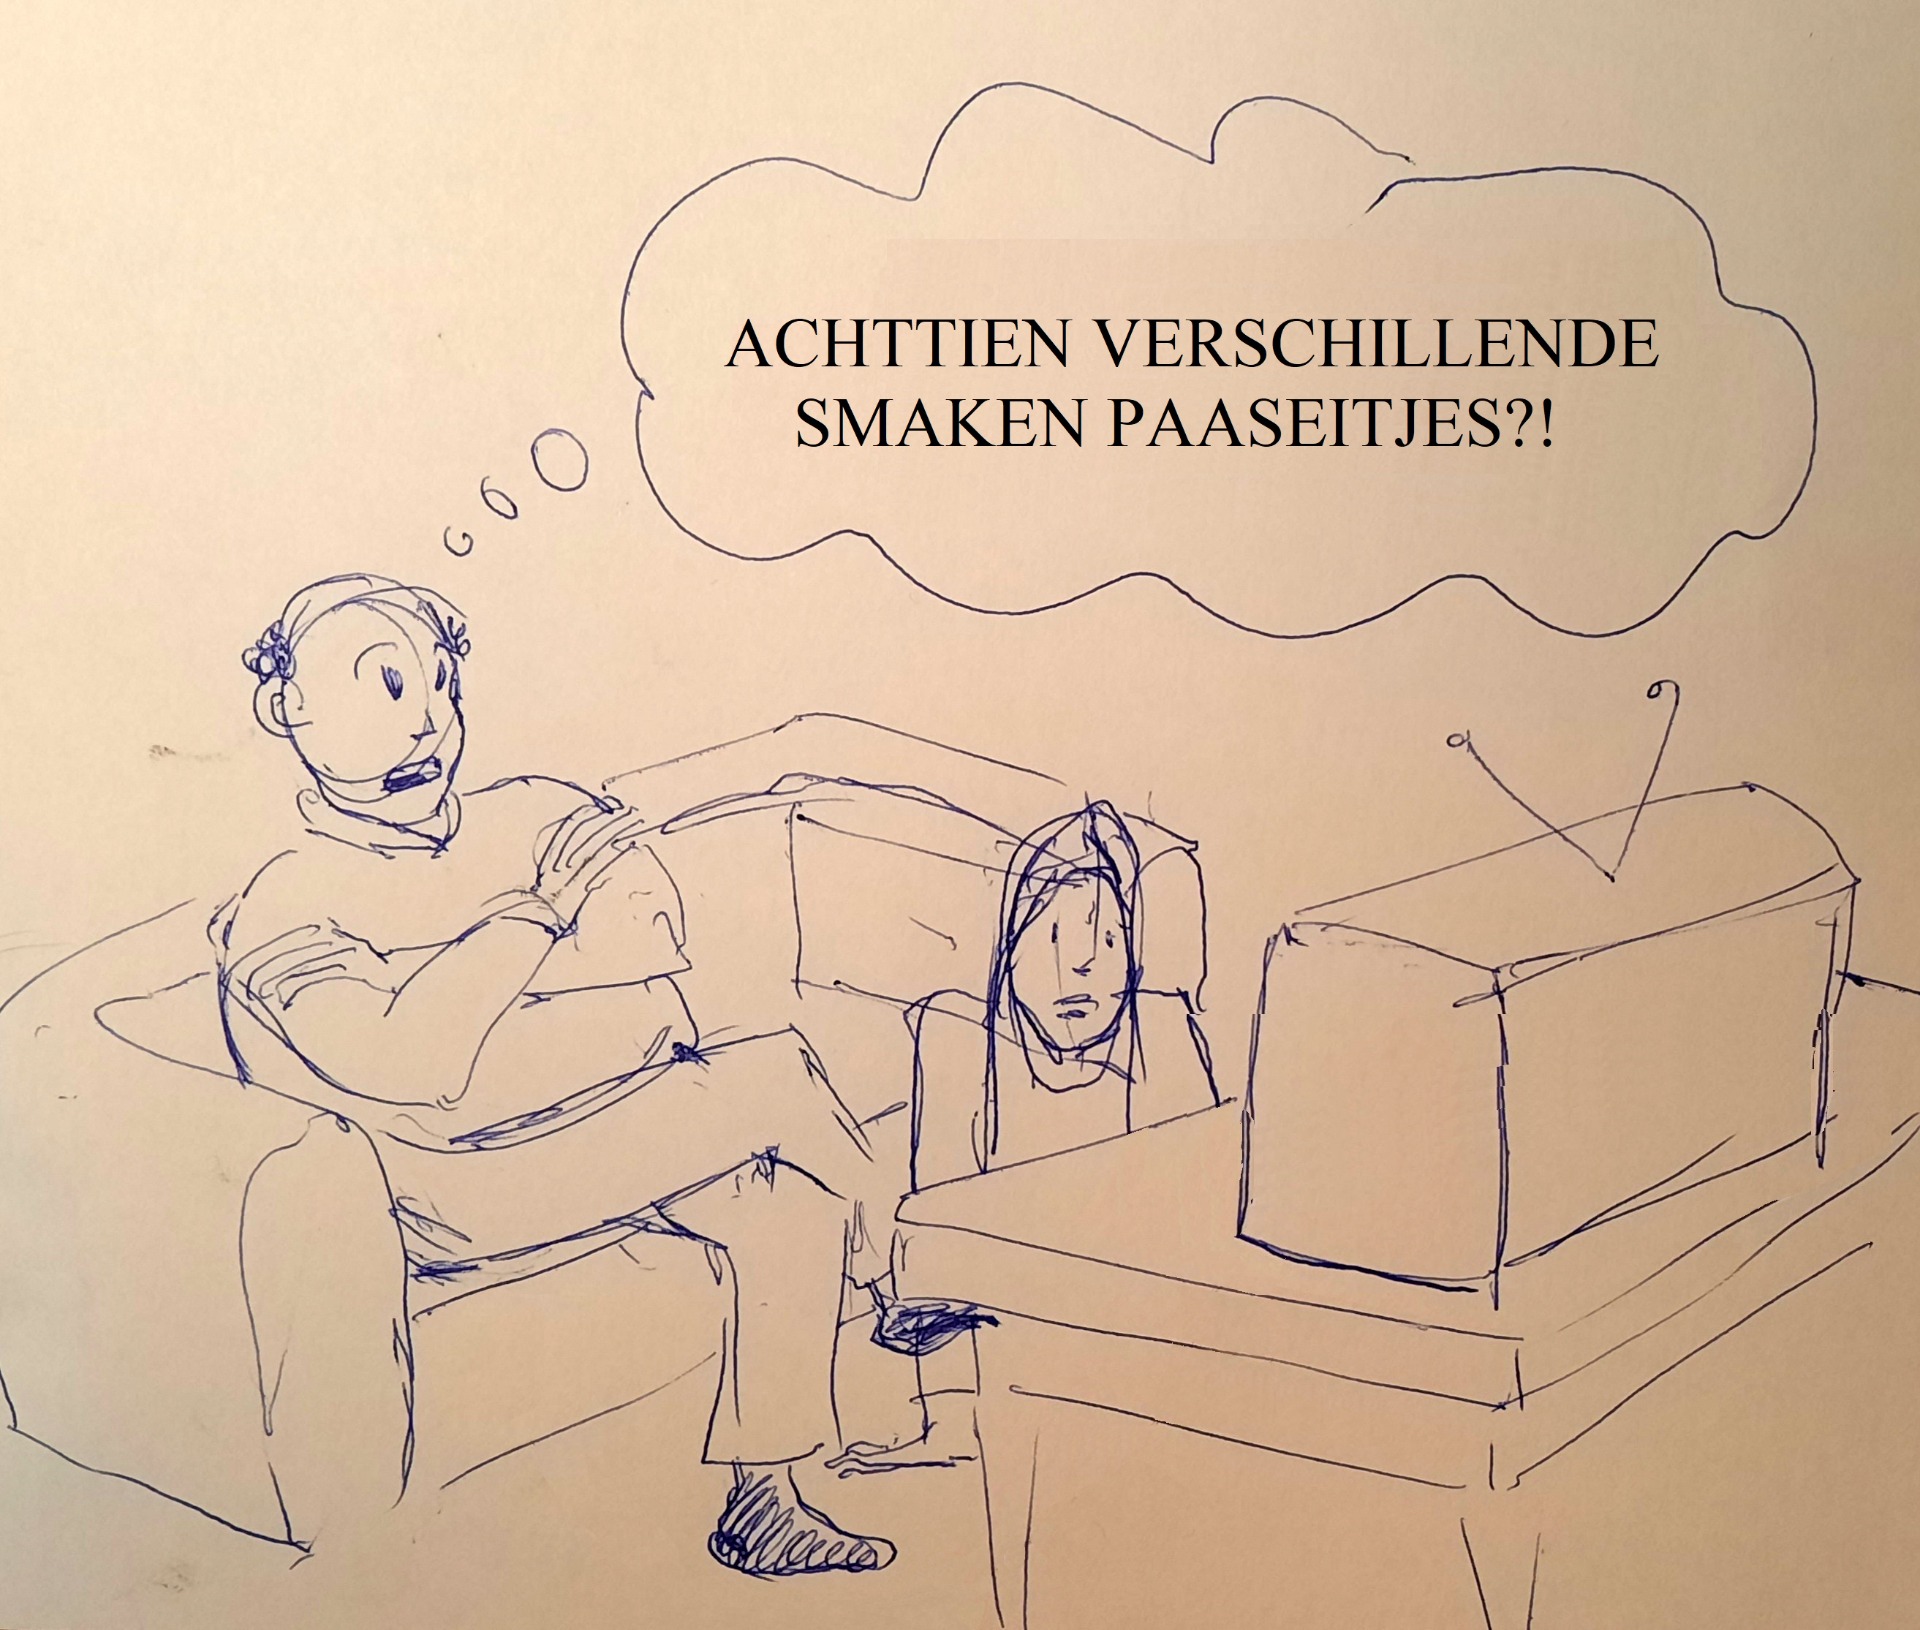 ACHTTIEN VERSCHILLENDE
SMAKEN PAASEITJES?!